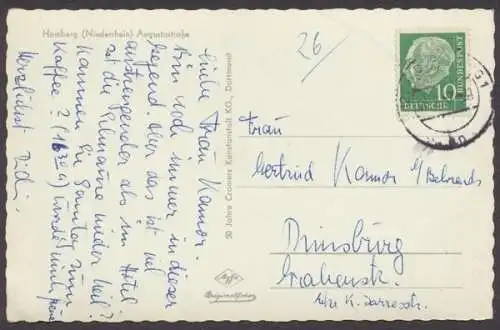 Homberg (Niederrhein) Augustastraße
Liebe Frau Kamor.
Bin noch immer in dieser
Gegend. Aber das ist viel
anstrengender als im Hotel
ist die Schulter wieder heil?
Kommen Sie Sonntag zum
Kaffee? (16 Uhr)
Herzlichst
50 Jahre Cramers Kunstanstalt KG., Dortmund
Agfa
Originalfoto
26
DEUTSCHE BUNDESPOST
10
Frau
Gertrud Kamor b/Behrends
Duisburg
Grabenstr.
Ecke K.